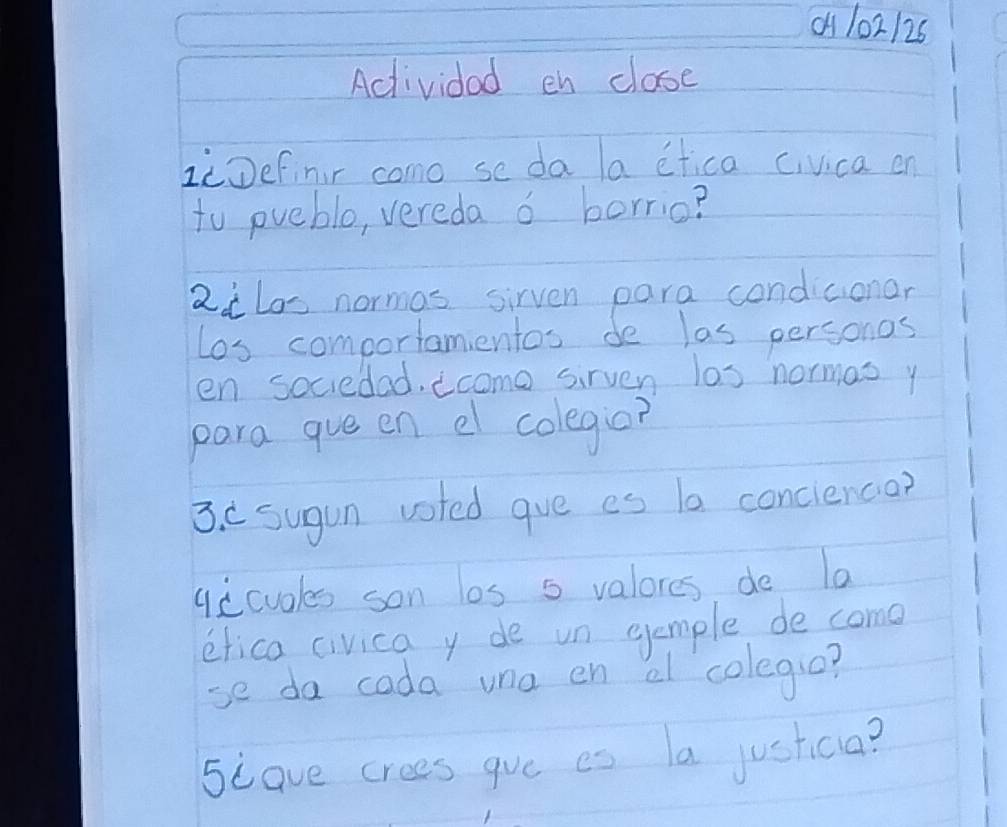 04/02/26
Actividad en clase
1¿Definir como se da la ética civica en
tu pueblo, vereda ó barrio?
2¿Las normas sirven para condicionar
los comportamientos de las personas
en sociedad. ¿como sirven las normas y
para que en el colegio?
3.¿sugun usted que es la conciencia?
4¿cuales son los 5 valores de la
ética civica y de un ejemple de como
se da cada una en el colegio?
5¿que crees que es la justicia?